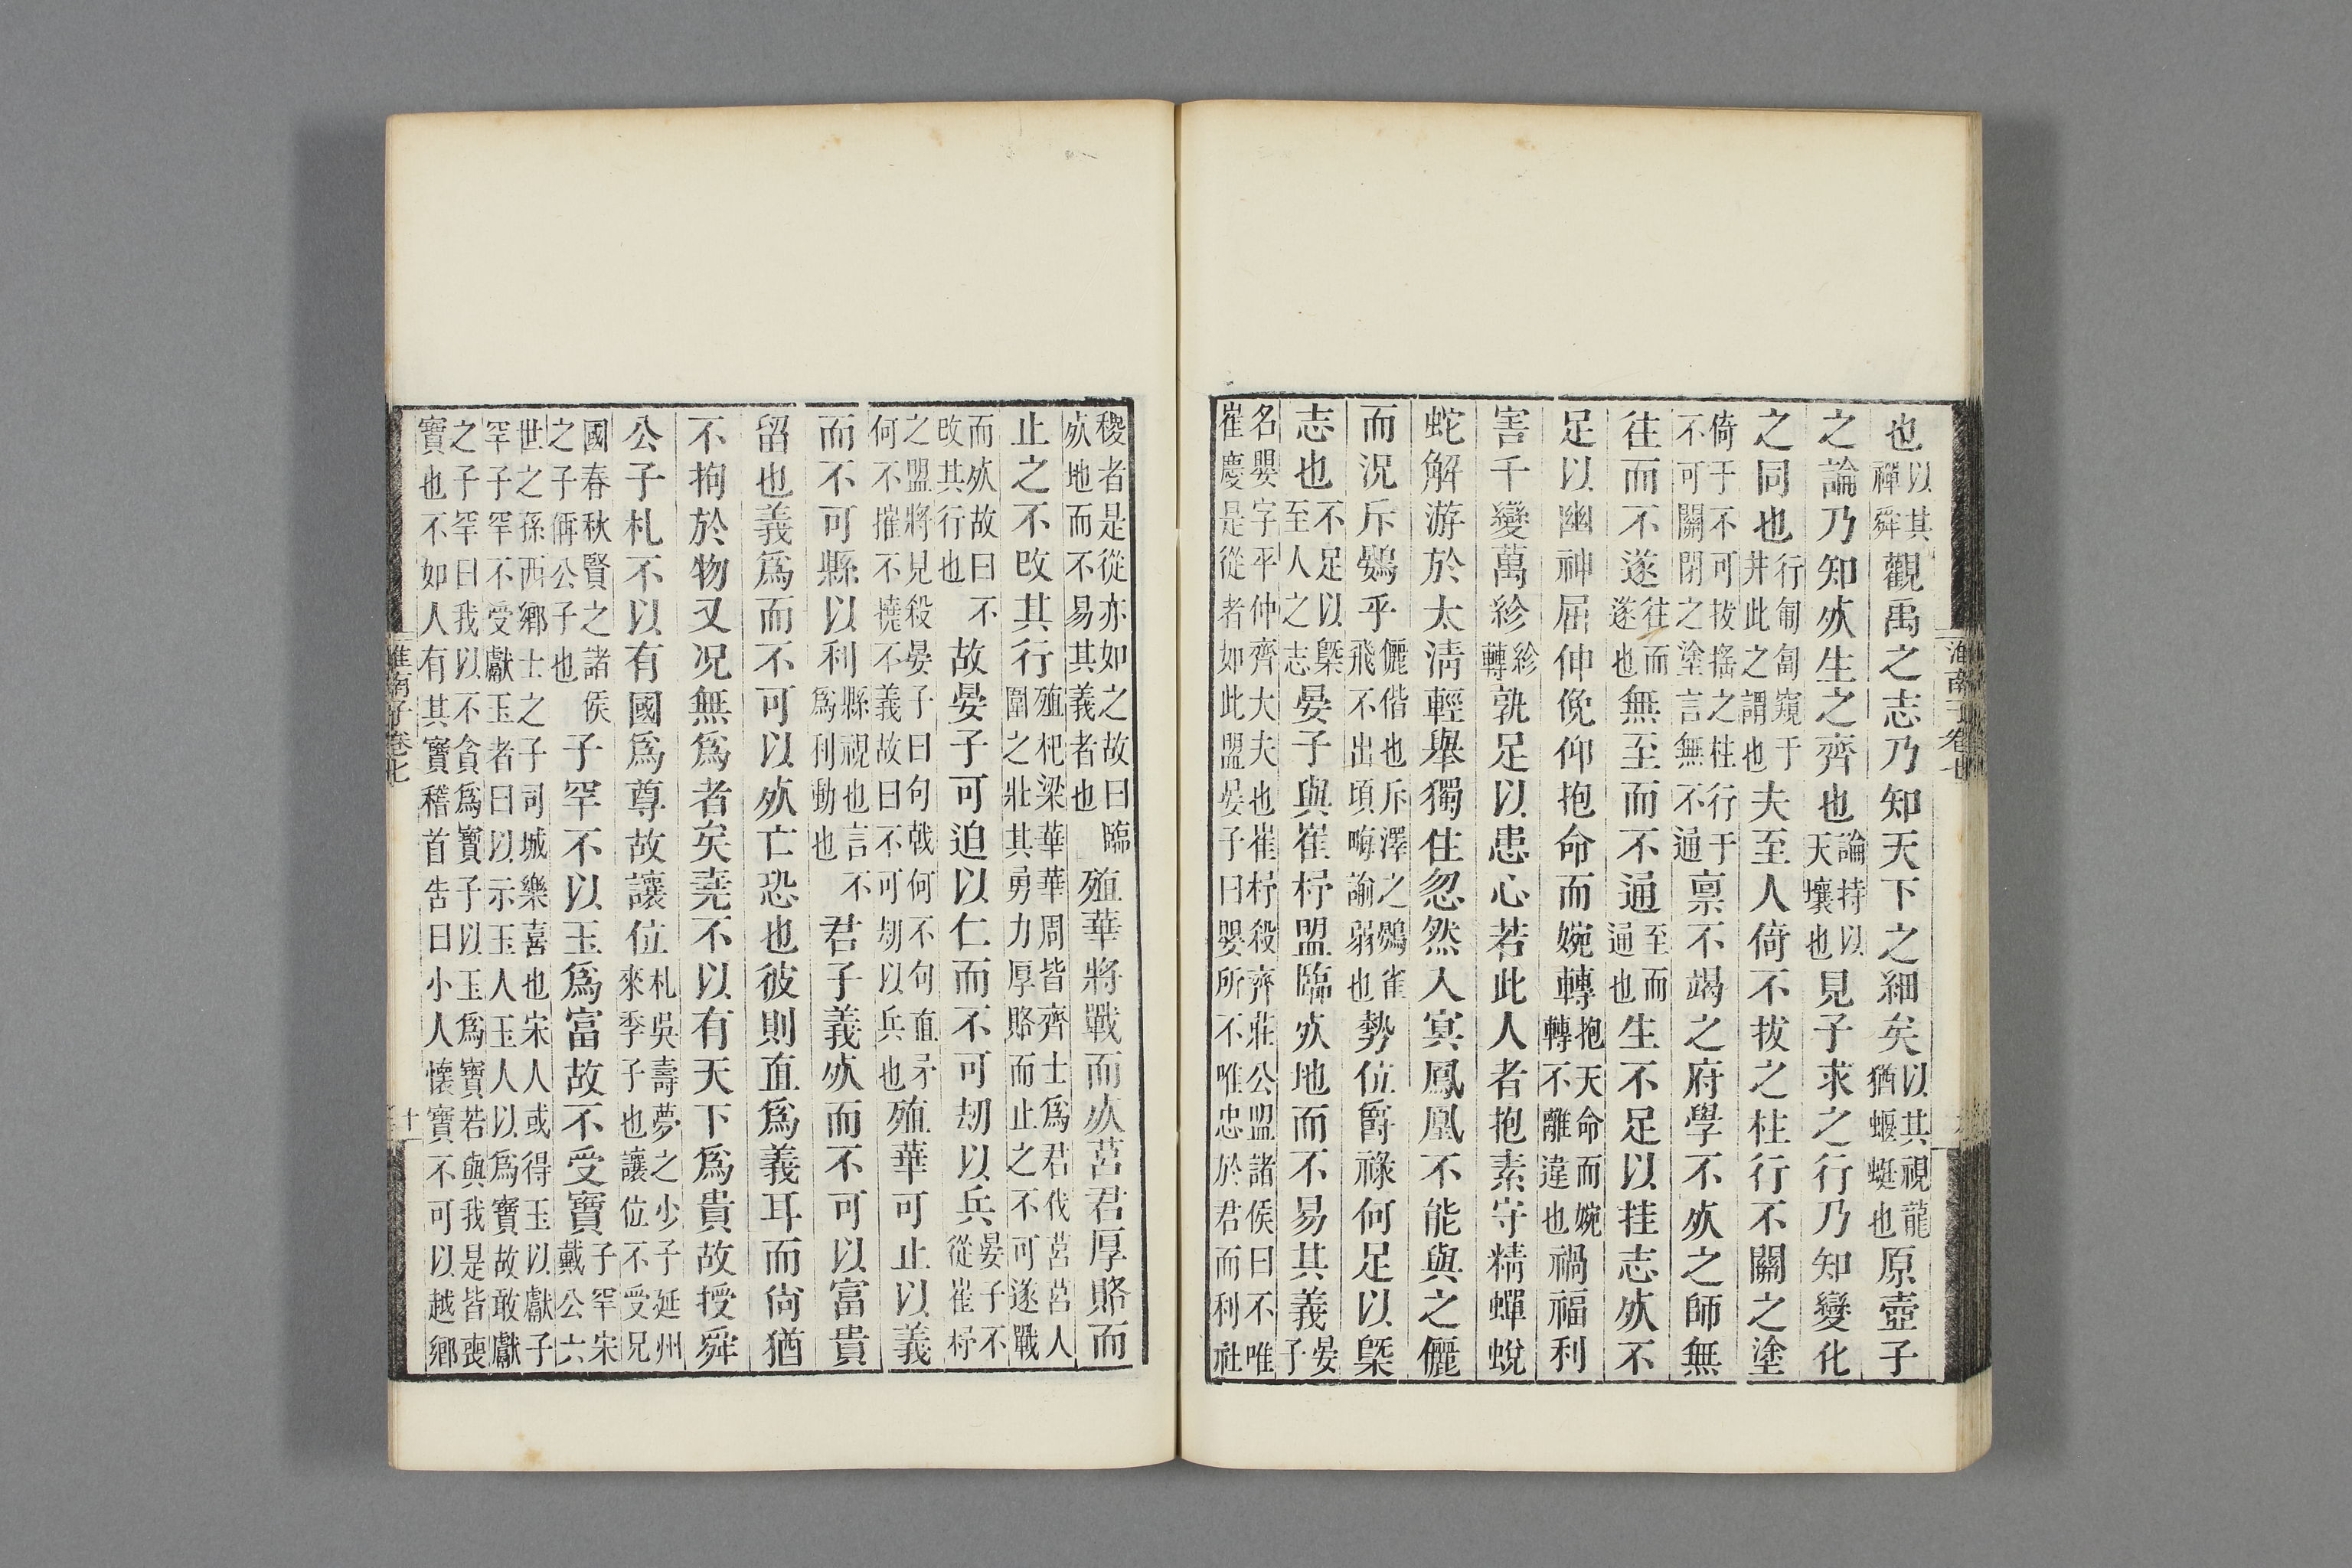 淮南子卷七
也以其禪舜觀禹之志乃知天下之細矣以其視龍猶蝘蜓也原壺子
之論乃知死生之齊也論持以天壤也見子求之行乃知變化
之同也行匍匐窺于井此之謂也夫至人倚不拔之柱行不關之塗
倚于不可拔搖之柱行于不可關閉之塗言無不通稟不竭之府學不死之師無
往而不遂往而遂也無至而不通至而通也生不足以挂志死不
足以幽神屈伸俛仰抱命而婉轉抱天命而婉轉不離違也禍福利
害千變萬紾紾轉孰足以患心若此人者抱素守精蟬蛻
蛇解游於太清輕舉獨住忽然入冥鳳凰不能與之儷
而況斥鷃乎儷偕也斥澤之鷃雀飛不出頃畮諭弱也勢位爵祿何足以槩
志也不足以槩至人之志晏子與崔杼盟臨死地而不易其義晏子
名嬰字平仲齊大夫也崔杼殺齊莊公盟諸侯曰不唯
崔慶是從者如此盟晏子曰嬰所不唯忠於君而利社
稷者是從亦如之故曰臨死地而不易其義者也殖華將戰而死莒君厚賂而
止之不改其行殖杞梁華華周皆齊士爲君伐莒莒人圍之壯其勇力厚賂而止之不可遂戰
而死故曰不改其行也故晏子可迫以仁而不可劫以兵晏子不從崔杼
之盟將見殺晏子曰句戟何不句直矛何不摧不撓不義故曰不可劫以兵也殖華可止以義
而不可縣以利縣視也言不爲利動也君子義死而不可以富貴
留也義爲而不可以死亡恐也彼則直爲義耳而尙猶
不拘於物又况無爲者矣堯不以有天下爲貴故授舜
公子札不以有國爲尊故讓位札吳壽夢之少子延州來季子也讓位不受兄
國春秋賢之諸侯之子偁公子也子罕不以玉爲富故不受寶子罕宋戴公六
世之孫西鄉士之子司城樂喜也宋人或得玉以獻子
罕子罕不受獻玉者曰以示玉人玉人以爲寶故敢獻
之子罕曰我以不貪爲寶子以玉爲寶若與我是皆喪
寶也不如人有其寶稽首告曰小人懷寶不可以越鄉
淮南子卷七
十一